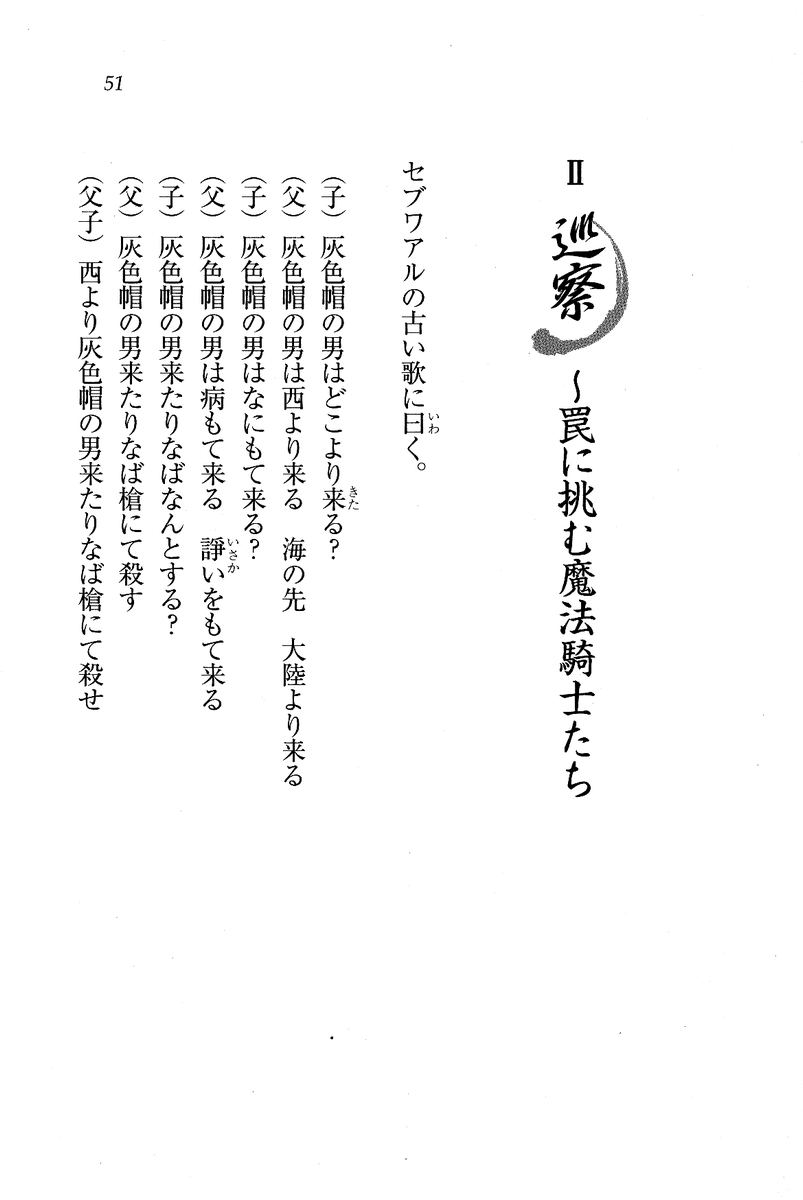 51
Ⅱ 巡察 〜罠に挑む魔法騎士たち
セブワアルの古い歌に曰く。
（子）灰色帽の男はどこより来る？
（父）灰色帽の男は西より来る　海の先　大陸より来る
（子）灰色帽の男はなにもて来る？
（父）灰色帽の男は病もて来る　諍いをもて来る
（子）灰色帽の男来たりなばなんとする？
（父）灰色帽の男来たりなば槍にて殺す
（父子）西より灰色帽の男来たりなば槍にて殺せ
いわ
きた
いさか